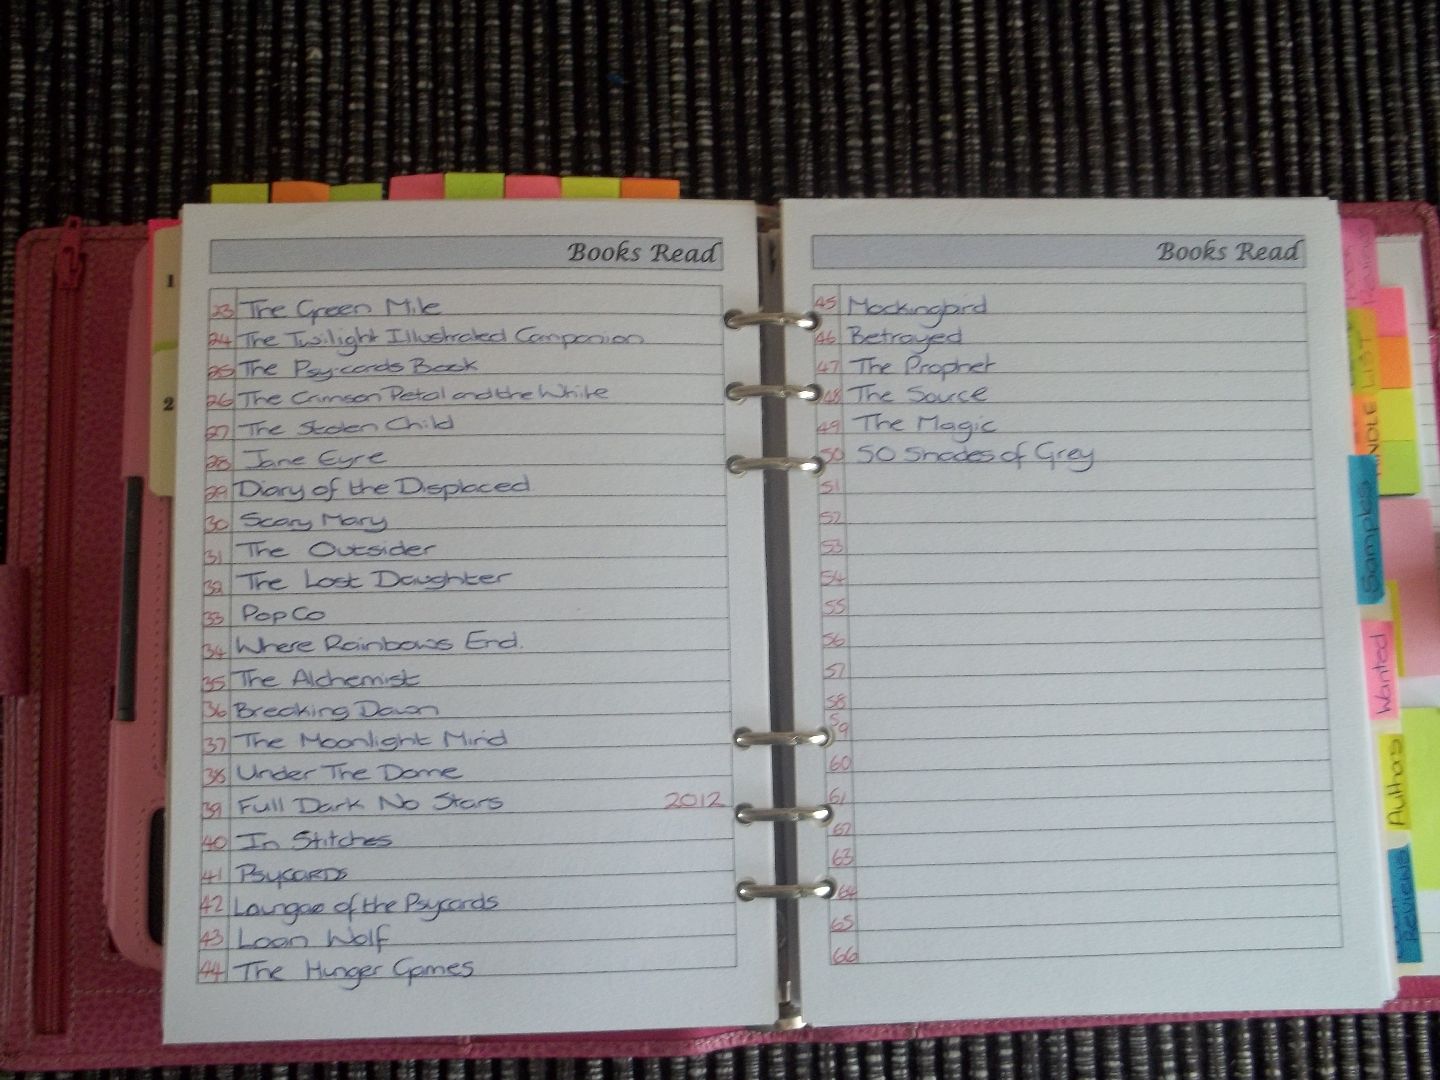 1
2
Books Read
23 The Green Mile
24 The Twilight Illustrated Companion
25 The Psycards Book
26 The Crimson Petal and the White
27 The Stolen Child
28 Jane Eyre
29 Diary of the Displaced
30 Scary Mary
31 The Outsider
32 The Lost Daughter
33 PopCo
34 Where Rainbows End.
35 The Alchemist
36 Breaking Dawn
37 The Moonlight Mind
38 Under The Dome
39 Full Dark No Stars 2012
40 In Stitches
41 Psycards
42 Langage of the Psycards
43 Loan Wolf
44 The Hunger Games
Books Read
45 Mockingbird
46 Betrayed
47 The Prophet
48 The Source
49 The Magic
50 50 Shades of Grey
51
52
53
54
55
56
57
58
59
60
61
62
63
64
65
66
LIST
Samples
Wanted
Authors
Reviews